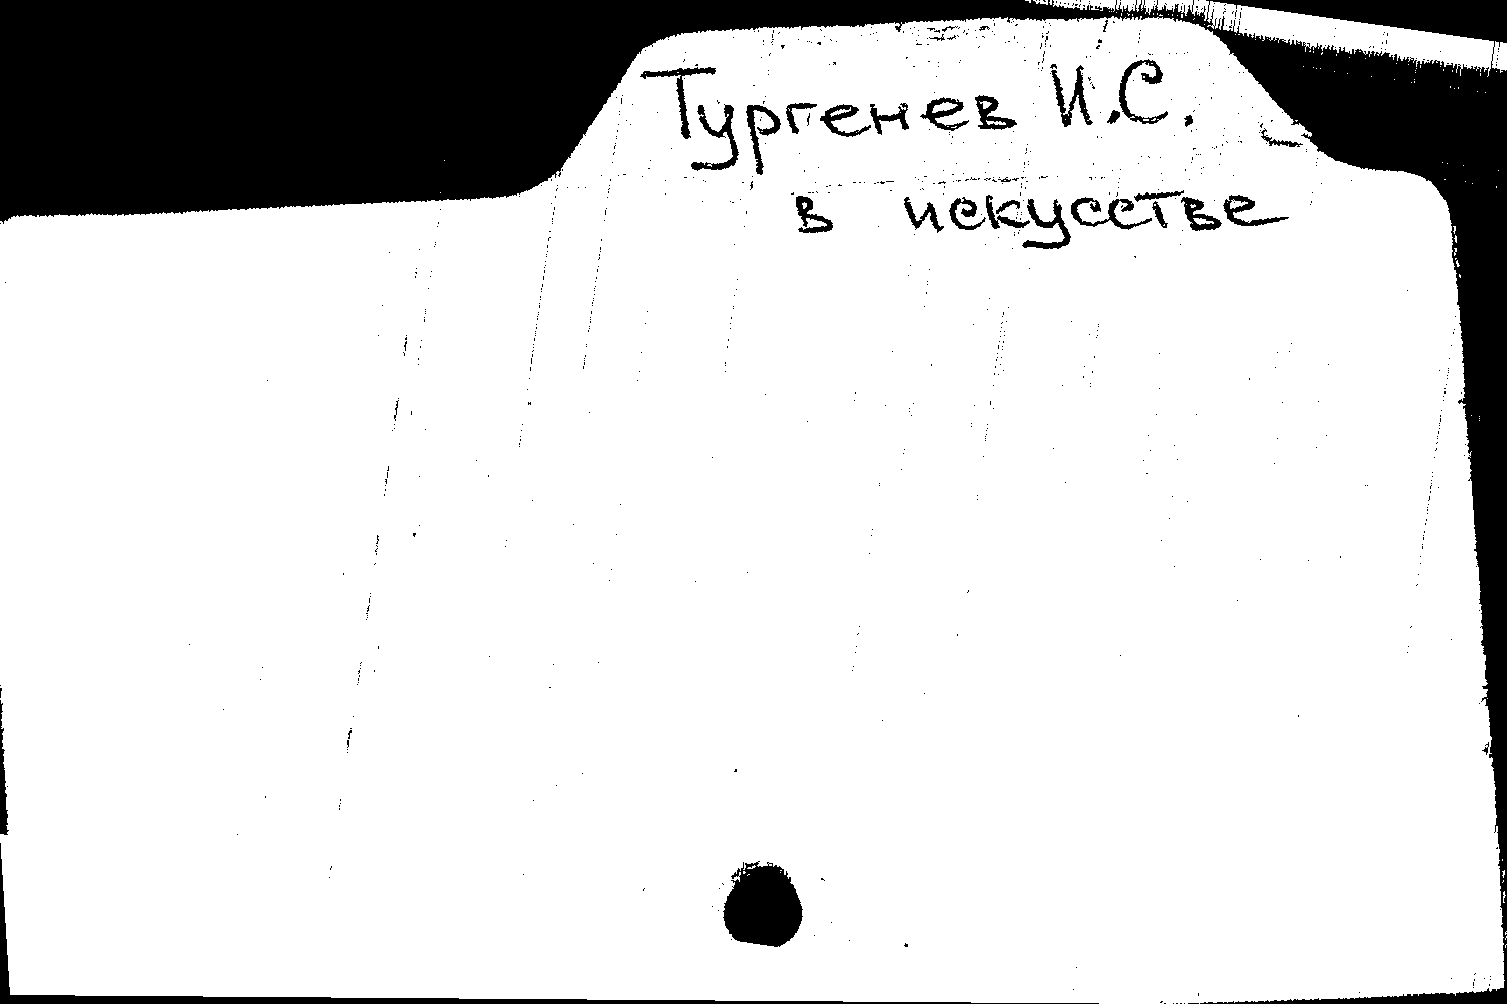 Тургенев И.С.
в искусстве